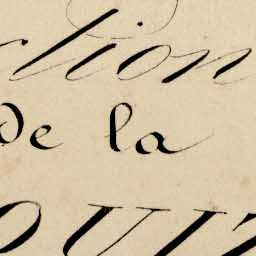 ction
de la
OUIZ